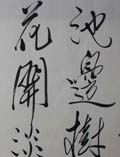 池邊樹
花開淡